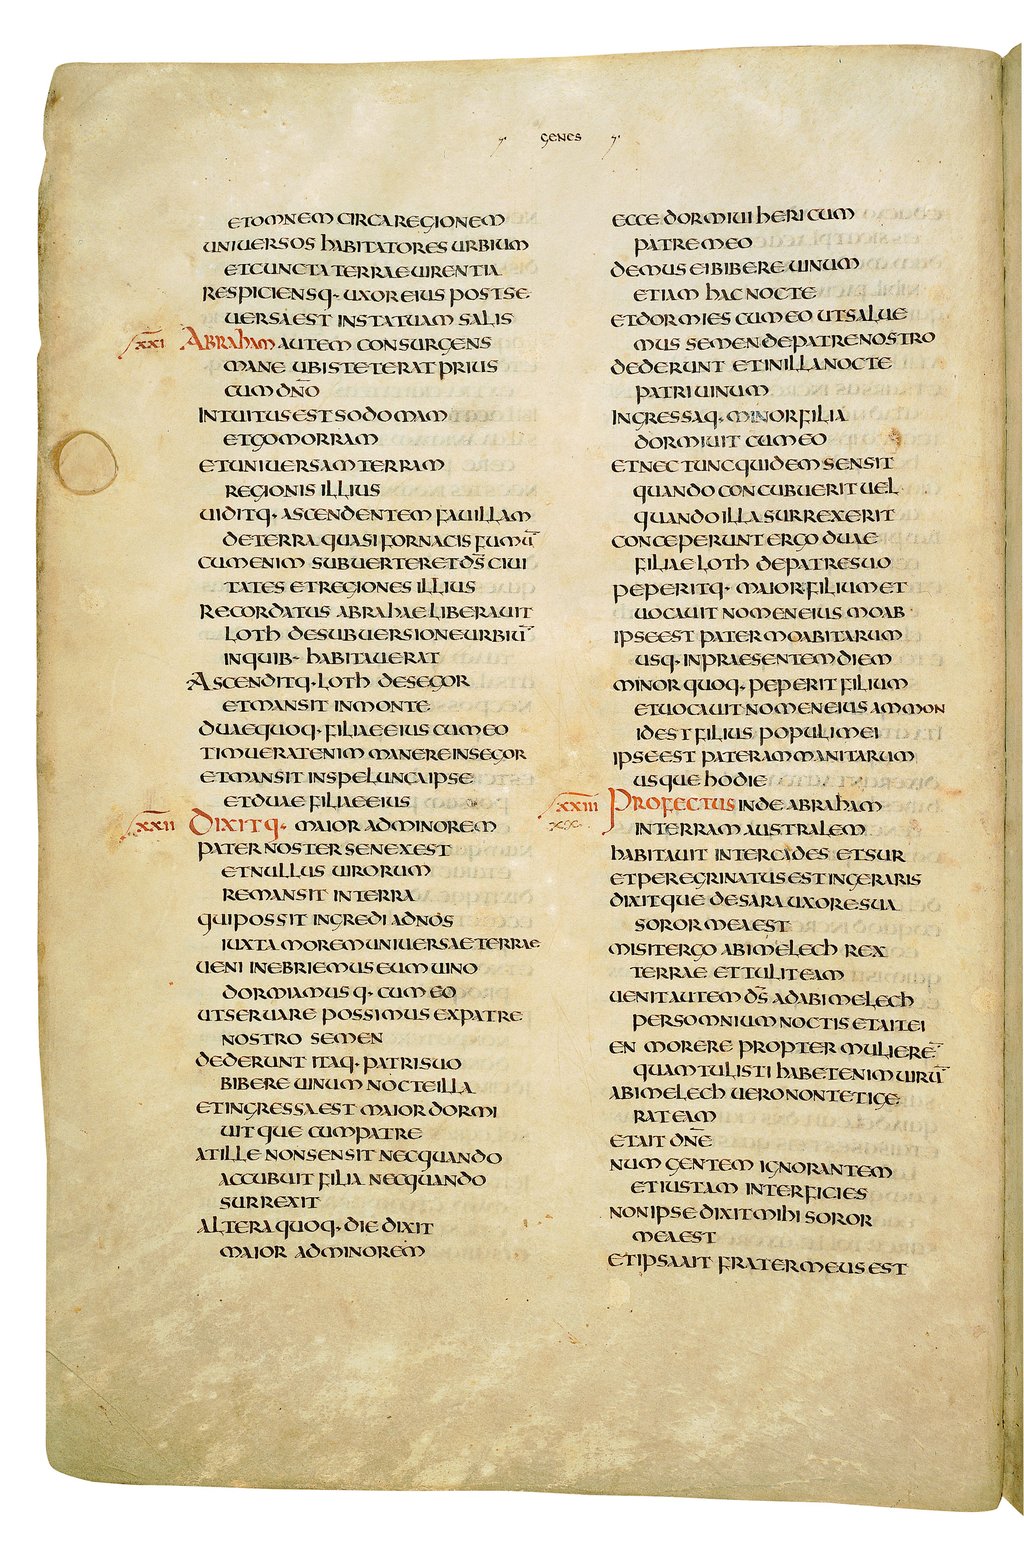 GENES
ET OMNEM CIRCA REGIONEM
UNIUERSOS HABITATORES URBIUM
ET CUNCTA TERRAE UIRENTIA
RESPICIENSQ· UXOR EIUS POST SE
UERSA EST IN STATUAM SALIS
XXI ABRAHAM AUTEM CONSURGENS
MANE UBI STETERAT PRIUS
CUM DN̄O
INTUITUS EST SODOMAM
ET GOMORRAM
ET UNIUERSAM TERRAM
REGIONIS ILLIUS
UIDITQ· ASCENDENTEM FAUILLAM
DE TERRA QUASI FORNACIS FUMŪ
CUM ENIM SUBUERTERET D̄S CIUI
TATES ET REGIONES ILLIUS
RECORDATUS ABRAHAE LIBERAUIT
LOTH DE SUBUERSIONE URBIŪ
IN QUIB· HABITAUERAT
ASCENDITQ· LOTH DE SEGOR
ET MANSIT IN MONTE
DUAE QUOQ· FILIAE EIUS CUM EO
TIMUERAT ENIM MANERE IN SEGOR
ET MANSIT IN SPELUNCA IPSE
ET DUAE FILIAE EIUS
XXII DIXITQ· MAIOR AD MINOREM
PATER NOSTER SENEX EST
ET NULLUS UIRORUM
REMANSIT IN TERRA
QUI POSSIT INGREDI AD NOS
IUXTA MOREM UNIUERSAE TERRAE
UENI INEBRIEMUS EUM UINO
DORMIAMUSQ· CUM EO
UT SERUARE POSSIMUS EX PATRE
NOSTRO SEMEN
DEDERUNT ITAQ· PATRI SUO
BIBERE UINUM NOCTE ILLA
ET INGRESSA EST MAIOR DORMI
UITQUE CUM PATRE
AT ILLE NON SENSIT NEC QUANDO
ACCUBUIT FILIA NEC QUANDO
SURREXIT
ALTERA QUOQ· DIE DIXIT
MAIOR AD MINOREM
ECCE DORMIUI HERI CUM
PATRE MEO
DEMUS EI BIBERE UINUM
ETIAM HAC NOCTE
ET DORMIES CUM EO UT SALUE
MUS SEMEN DE PATRE NOSTRO
DEDERUNT ET IN ILLA NOCTE
PATRI UINUM
INGRESSAQ· MINOR FILIA
DORMIUIT CUM EO
ET NEC TUNC QUIDEM SENSIT
QUANDO CONCUBUERIT UEL
QUANDO ILLA SURREXERIT
CONCEPERUNT ERGO DUAE
FILIAE LOTH DE PATRE SUO
PEPERITQ· MAIOR FILIUM ET
UOCAUIT NOMEN EIUS MOAB
IPSE EST PATER MOABITARUM
USQ· IN PRAESENTEM DIEM
MINOR QUOQ· PEPERIT FILIUM
ET UOCAUIT NOMEN EIUS AMMON
ID EST FILIUS POPULI MEI
IPSE EST PATER AMMANITARUM
USQUE HODIE
XXIII PROFECTUS INDE ABRAHAM
XX IN TERRAM AUSTRALEM
HABITAUIT INTER CADES ET SUR
ET PEREGRINATUS EST IN GERARIS
DIXITQUE DE SARA UXORE SUA
SOROR MEA EST
MISIT ERGO ABIMELECH REX
TERRAE ET TULIT EAM
UENIT AUTEM D̄S AD ABIMELECH
PER SOMNIUM NOCTIS ET AIT EI
EN MORERE PROPTER MULIERĒ
QUAM TULISTI HABET ENIM UIRŪ
ABIMELECH UERO NON TETIGE
RAT EAM
ET AIT DN̄E
NUM GENTEM IGNORANTEM
ET IUSTAM INTERFICIES
NON IPSE DIXIT MIHI SOROR
MEA EST
ET IPSA AIT FRATER MEUS EST